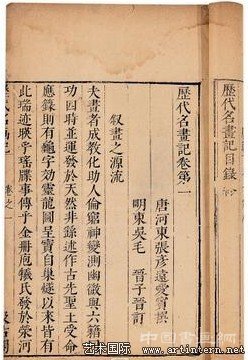 歷代名畫記目錄
歷代名畫記卷第一
唐河東張彥遠愛賓撰
明東吳毛 晉子晉訂
叙畫之源流
夫畫者成教化助人倫窮神變測幽微與六籍同
功四時並運發於天然非繇述作古先聖王受命
應籙則有龜字效靈龍圖呈寶自巢燧以來皆有
此瑞迹暎乎瑤牒事傳乎金冊庖犧氏發於滎河
卷之一
艺术国际 www.artintern.net